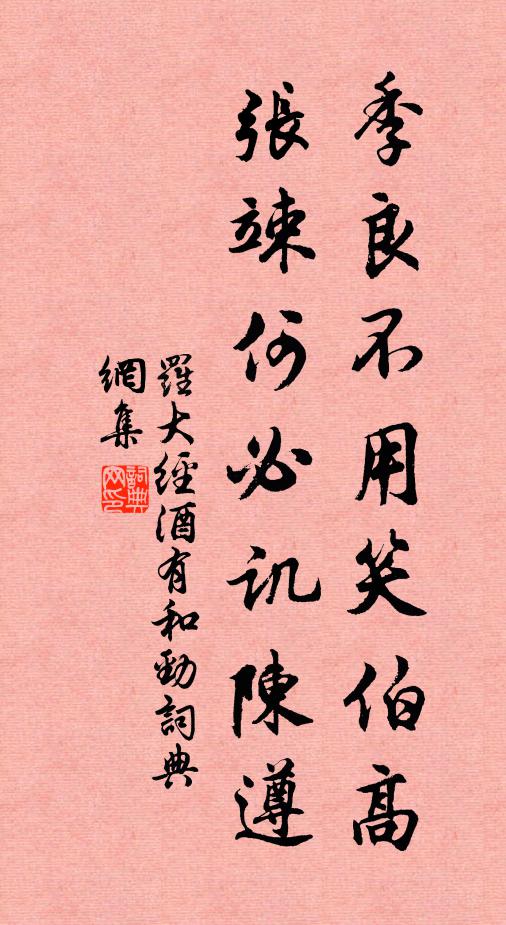 季良不用笑伯高
張竦何必譏陳遵
羅大經酒有和勁詞典
網集
詞典網印